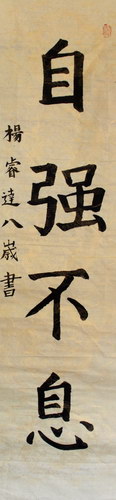 自强不息
楊睿達八歲書